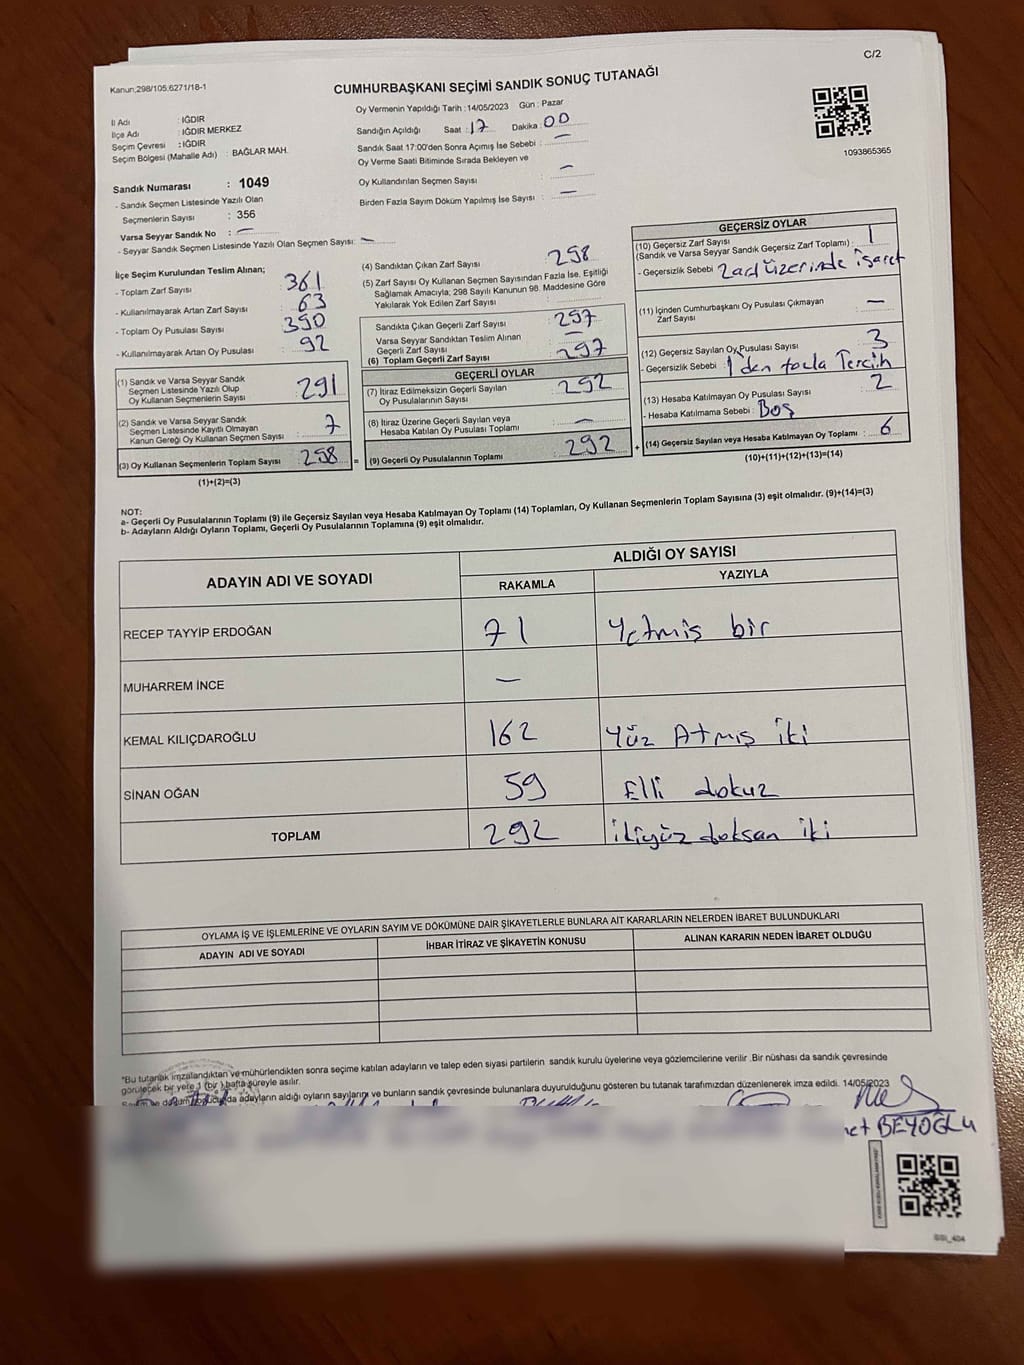 C/2
Kanun,298/105;6271/18-1
CUMHURBAŞKANI SEÇİMİ SANDIK SONUÇ TUTANAĞI
İl Adı : IĞDIR
İlçe Adı : IĞDIR MERKEZ
Seçim Çevresi : IĞDIR
Seçim Bölgesi (Mahalle Adı) : BAĞLAR MAH.
Oy Vermenin Yapıldığı Tarih :14/05/2023 Gün : Pazar
Sandığın Açıldığı Saat : 17 Dakika : 00
Sandık Saat 17:00'den Sonra Açımış İse Sebebi : —
Oy Verme Saati Bitiminde Sırada Bekleyen ve
Oy Kullandırılan Seçmen Sayısı : —
Birden Fazla Sayım Döküm Yapılmış İse Sayısı : —
1093865365
Sandık Numarası : 1049
- Sandık Seçmen Listesinde Yazılı Olan
Seçmenlerin Sayısı : 356
Varsa Seyyar Sandık No : —
- Seyyar Sandık Seçmen Listesinde Yazılı Olan Seçmen Sayısı: —
İlçe Seçim Kurulundan Teslim Alınan;
- Toplam Zarf Sayısı : 361
- Kullanılmayarak Artan Zarf Sayısı : 63
- Toplam Oy Pusulası Sayısı : 390
- Kullanılmayarak Artan Oy Pusulası : 92
(1) Sandık ve Varsa Seyyar Sandık
Seçmen Listesinde Yazılı Olup
Oy Kullanan Seçmenlerin Sayısı : 291
(2) Sandık ve Varsa Seyyar Sandık
Seçmen Listesinde Kayıtlı Olmayan
Kanun Gereği Oy Kullanan Seçmen Sayısı : 7
(3) Oy Kullanan Seçmenlerin Toplam Sayısı : 298
(1)+(2)=(3)
(4) Sandıktan Çıkan Zarf Sayısı : 298
(5) Zarf Sayısı Oy Kullanan Seçmen Sayısından Fazla İse, Eşitliği
Sağlamak Amacıyla; 298 Sayılı Kanunun 98. Maddesine Göre
Yakılarak Yok Edilen Zarf Sayısı :
Sandıkta Çıkan Geçerli Zarf Sayısı : 297
Varsa Seyyar Sandıktan Teslim Alınan
Geçerli Zarf Sayısı : —
(6) Toplam Geçerli Zarf Sayısı : 297
GEÇERLİ OYLAR
(7) İtiraz Edilmeksizin Geçerli Sayılan
Oy Pusulalarının Sayısı : 292
(8) İtiraz Üzerine Geçerli Sayılan veya
Hesaba Katılan Oy Pusulası Toplamı : —
(9) Geçerli Oy Pusulalarının Toplamı : 292
GEÇERSİZ OYLAR
(10) Geçersiz Zarf Sayısı
(Sandık ve Varsa Seyyar Sandık Geçersiz Zarf Toplamı) : 1
- Geçersizlik Sebebi : Zarf üzerinde işaret
(11) İçinden Cumhurbaşkanı Oy Pusulası Çıkmayan
Zarf Sayısı : —
(12) Geçersiz Sayılan Oy Pusulası Sayısı : 3
- Geçersizlik Sebebi : 1'den fazla Tercih
(13) Hesaba Katılmayan Oy Pusulası Sayısı : 2
- Hesaba Katılmama Sebebi : Boş
(14) Geçersiz Sayılan veya Hesaba Katılmayan Oy Toplamı : 6
(10)+(11)+(12)+(13)=(14)
NOT:
a- Geçerli Oy Pusulalarının Toplamı (9) ile Geçersiz Sayılan veya Hesaba Katılmayan Oy Toplamı (14) Toplamları, Oy Kullanan Seçmenlerin Toplam Sayısına (3) eşit olmalıdır. (9)+(14)=(3)
b- Adayların Aldığı Oyların Toplamı, Geçerli Oy Pusulalarının Toplamına (9) eşit olmalıdır.
ADAYIN ADI VE SOYADI
ALDIĞI OY SAYISI
RAKAMLA YAZIYLA
RECEP TAYYİP ERDOĞAN 71 Yetmiş bir
MUHARREM İNCE —
KEMAL KILIÇDAROĞLU 162 Yüz Atmış iki
SİNAN OĞAN 59 Elli dokuz
TOPLAM 292 ikiyüz doksan iki
OYLAMA İŞ VE İŞLEMLERİNE VE OYLARIN SAYIM VE DÖKÜMÜNE DAİR ŞİKAYETLERLE BUNLARA AİT KARARLARIN NELERDEN İBARET BULUNDUKLARI
ADAYIN ADI VE SOYADI İHBAR İTİRAZ VE ŞİKAYETİN KONUSU ALINAN KARARIN NEDEN İBARET OLDUĞU
"Bu tutanak imzalandıktan ve mühürlendikten sonra seçime katılan adayların ve talep eden siyasi partilerin sandık kurulu üyelerine veya gözlemcilerine verilir .Bir nüshası da sandık çevresinde
görülecek bir yere 1 (bir ) hafta süreyle asılır.
Sayım ve döküm da adayların aldığı oyların sayılarını ve bunların sandık çevresinde bulunanlara duyurulduğunu gösteren bu tutanak tarafımızdan düzenlenerek imza edildi. 14/05/2023
BEYOĞLU
SSI_404